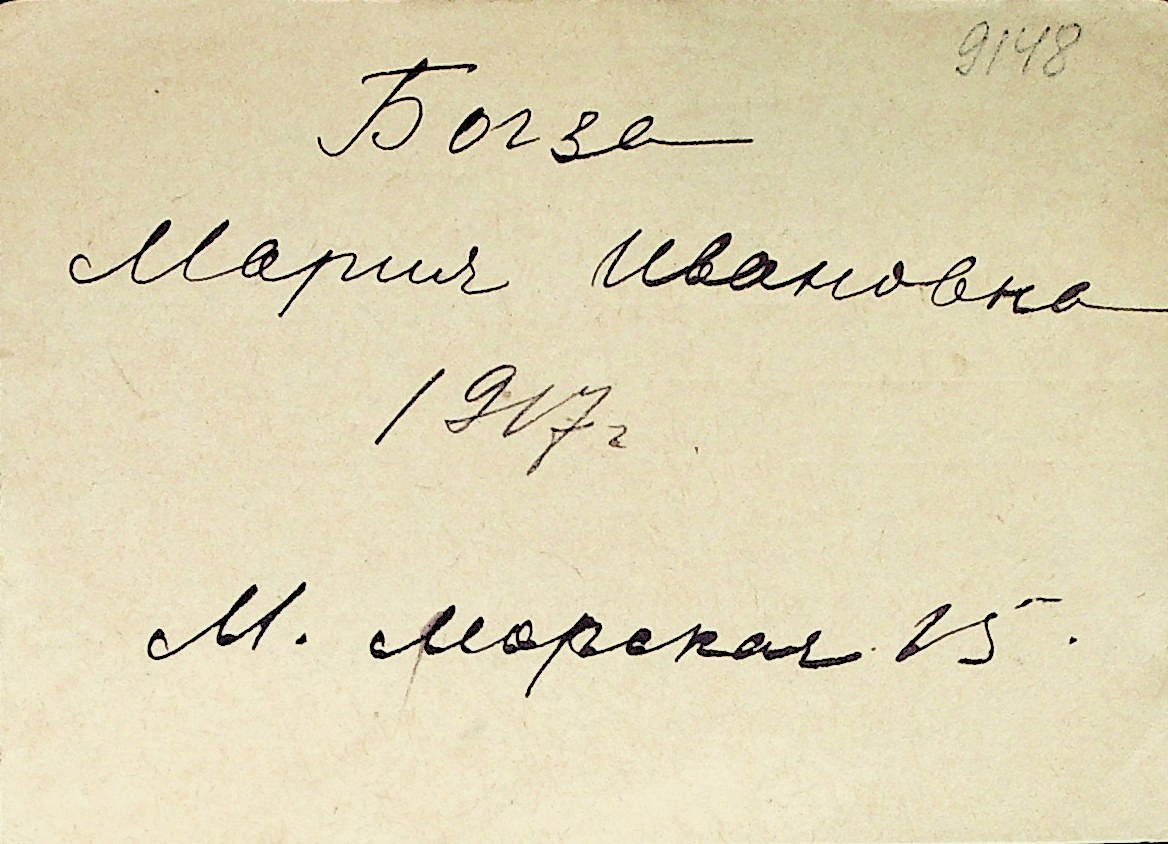 9148
Богза
Мария Ивановна
1917г
М. Морская 15.